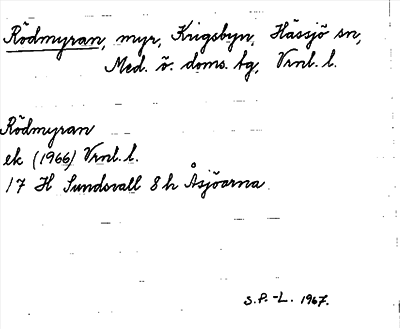 Rödmyran, myr, Krigsbyn, Hässjö sn,
Med. ö. doms. tg, Vrnl. l.
Rödmyran
ek (1966) Vrnl. l.
17 H Sundsvall 8 h Åsjöarna
S.P.-L. 1967.